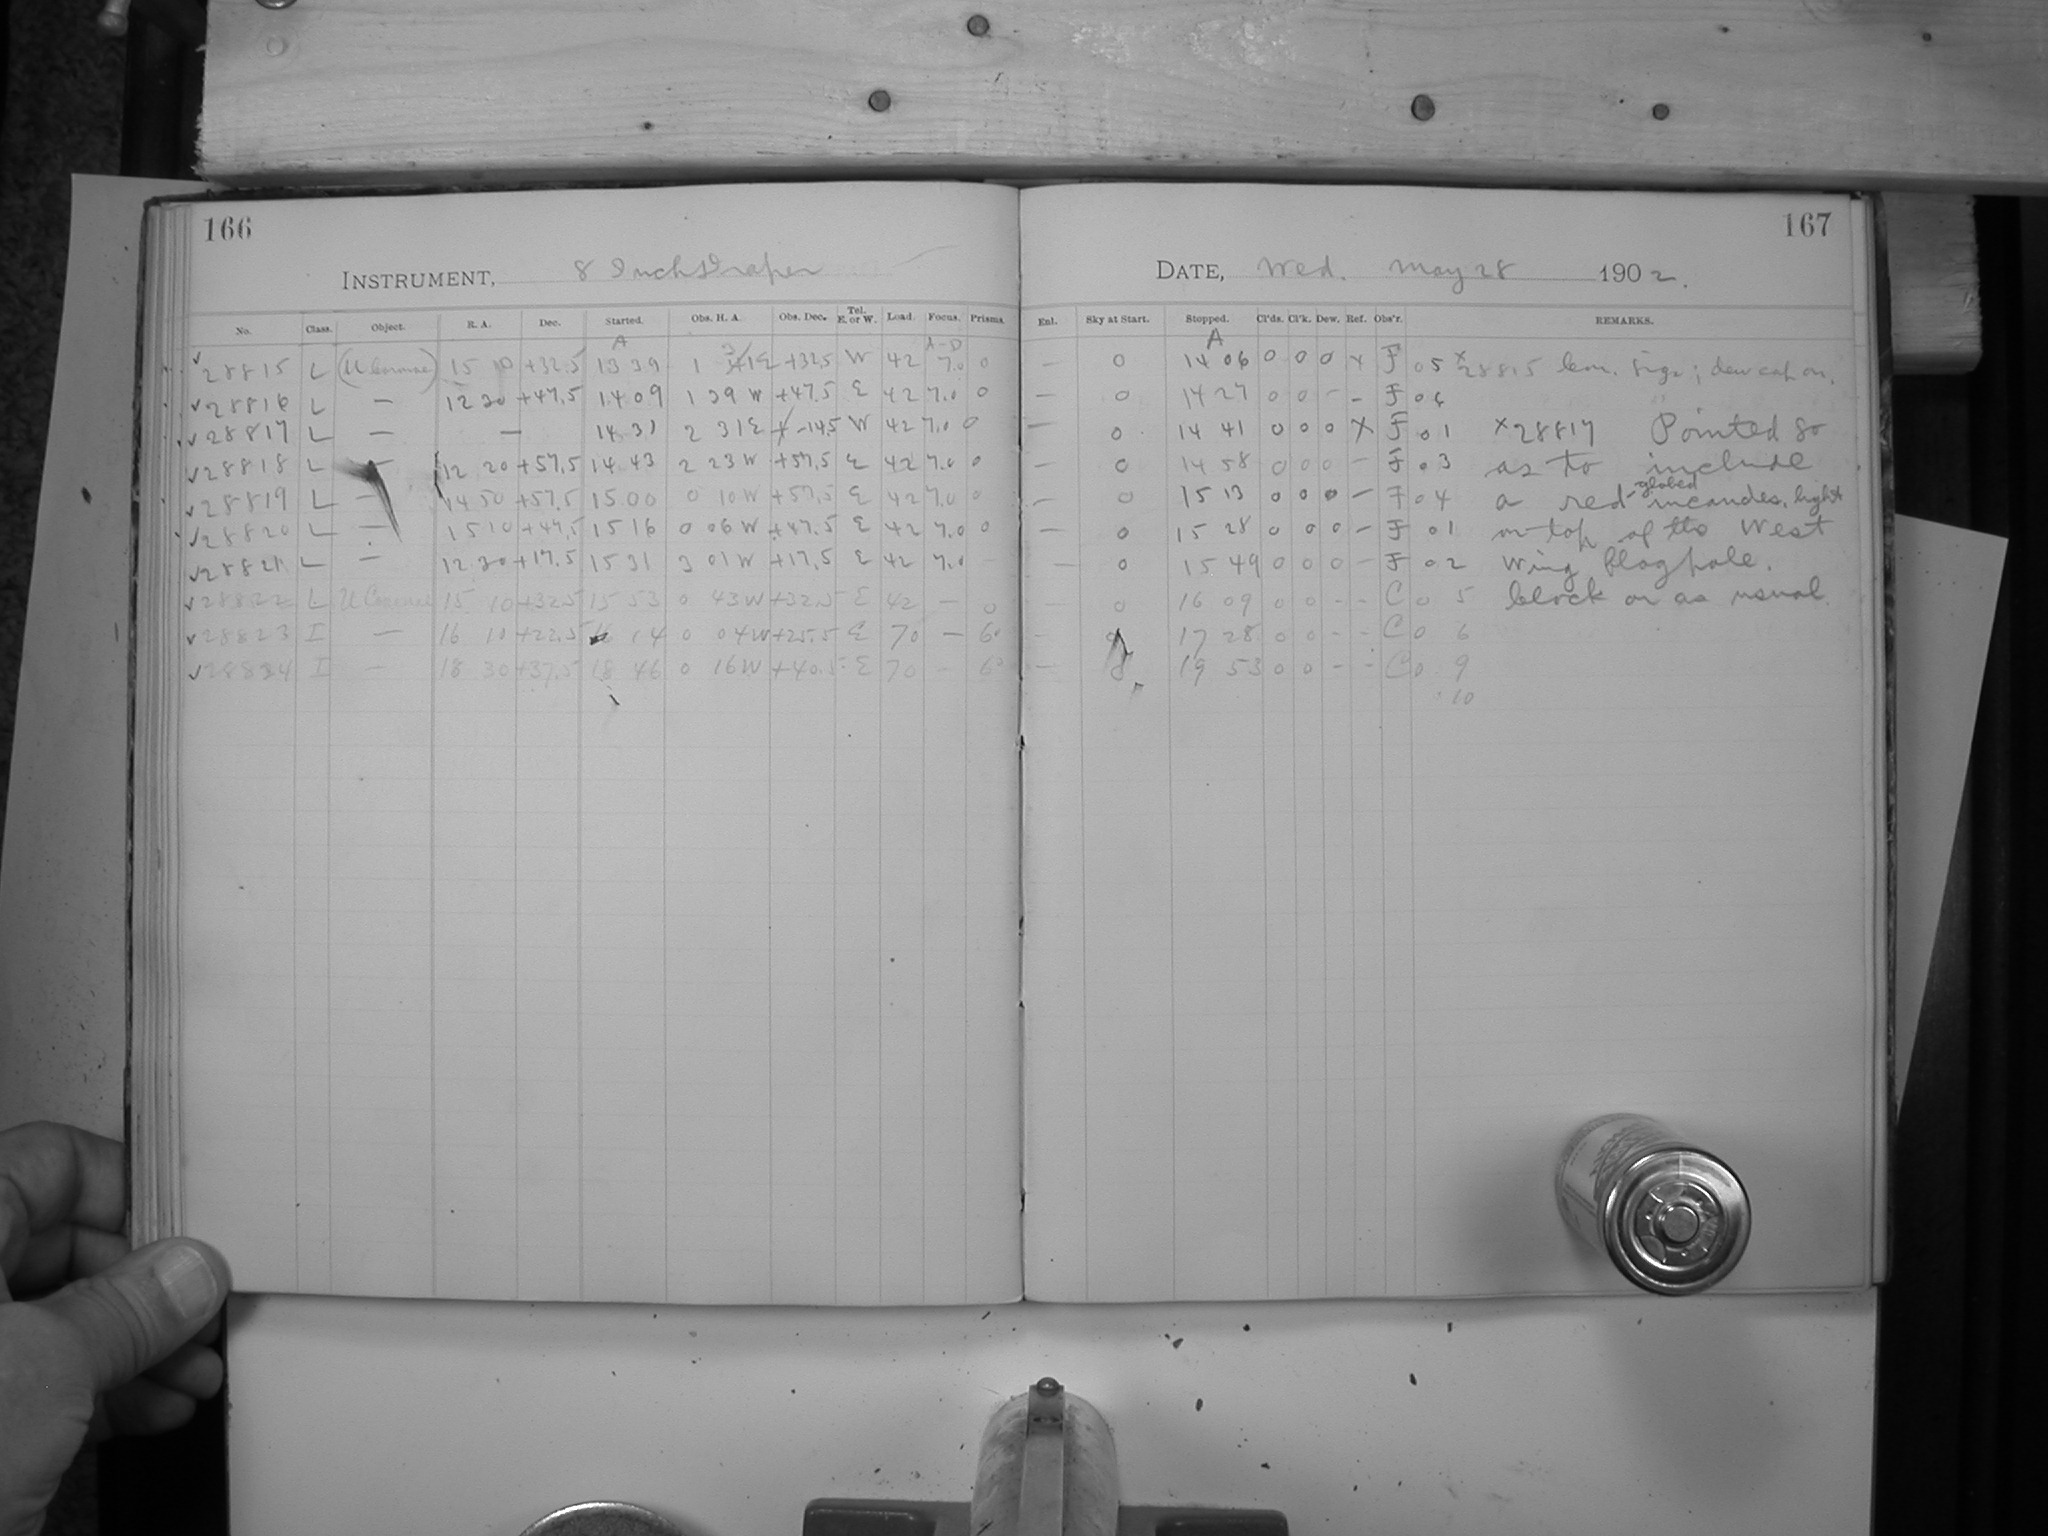 166
INSTRUMENT, 8 Inch Draper
No. Class. Object. R. A. Dec. Started. Obs. H. A. Obs. Dec. Tel. E. or W. Load. Focus. Prisms.
A A-D
28815 L (U Coronae) 15 10 +32.5 13 39 1 31 E +32.5 W 42 7.0 0
28816 L — 12 30 +47.5 14 09 1 39 W +47.5 E 42 7.0 0
28817 L — — 14 31 2 31 E -14.5 W 42 7.0 0
28818 L — 12 20 +57.5 14 43 2 23 W +57.5 E 42 7.0 0
28819 L — 14 50 +57.5 15 00 0 10 W +57.5 E 42 7.0 0
28820 L — 15 10 +47.5 15 16 0 06 W +47.5 E 42 7.0 0
28821 L — 12 30 +17.5 15 31 3 01 W +17.5 E 42 7.0
28822 L U Coronae 15 10 +32.5 15 53 0 43 W +32.5 E 42 — 0
28823 I — 16 10 +22.5 16 14 0 04 W +25.5 E 70 — 6
28824 I — 18 30 +37.5 18 46 0 16 W +40.5 E 70 — 6
167
DATE, Wed. May 28 1902.
Enl. Sky at Start. Stopped. Cl'ds. Cl'k. Dew. Ref. Obs'r. REMARKS.
A
— 0 14 06 0 0 0 x F 05 x28815 dew cap on.
— 0 14 27 0 0 - - F 06
— 0 14 41 0 0 0 X F 01 x28817 Pointed so
— 0 14 58 0 0 0 - F 03 as to include
— 0 15 13 0 0 0 - F 04 a red-globed incandes. light
— 0 15 28 0 0 0 - F 01 on top of the West
— 0 15 49 0 0 0 - F 02 Wing flagpole.
— 0 16 09 0 0 - - C 0 5 clock on as usual.
— 0 17 28 0 0 - - C 0 6
— 19 53 0 0 - - C 0 9
10